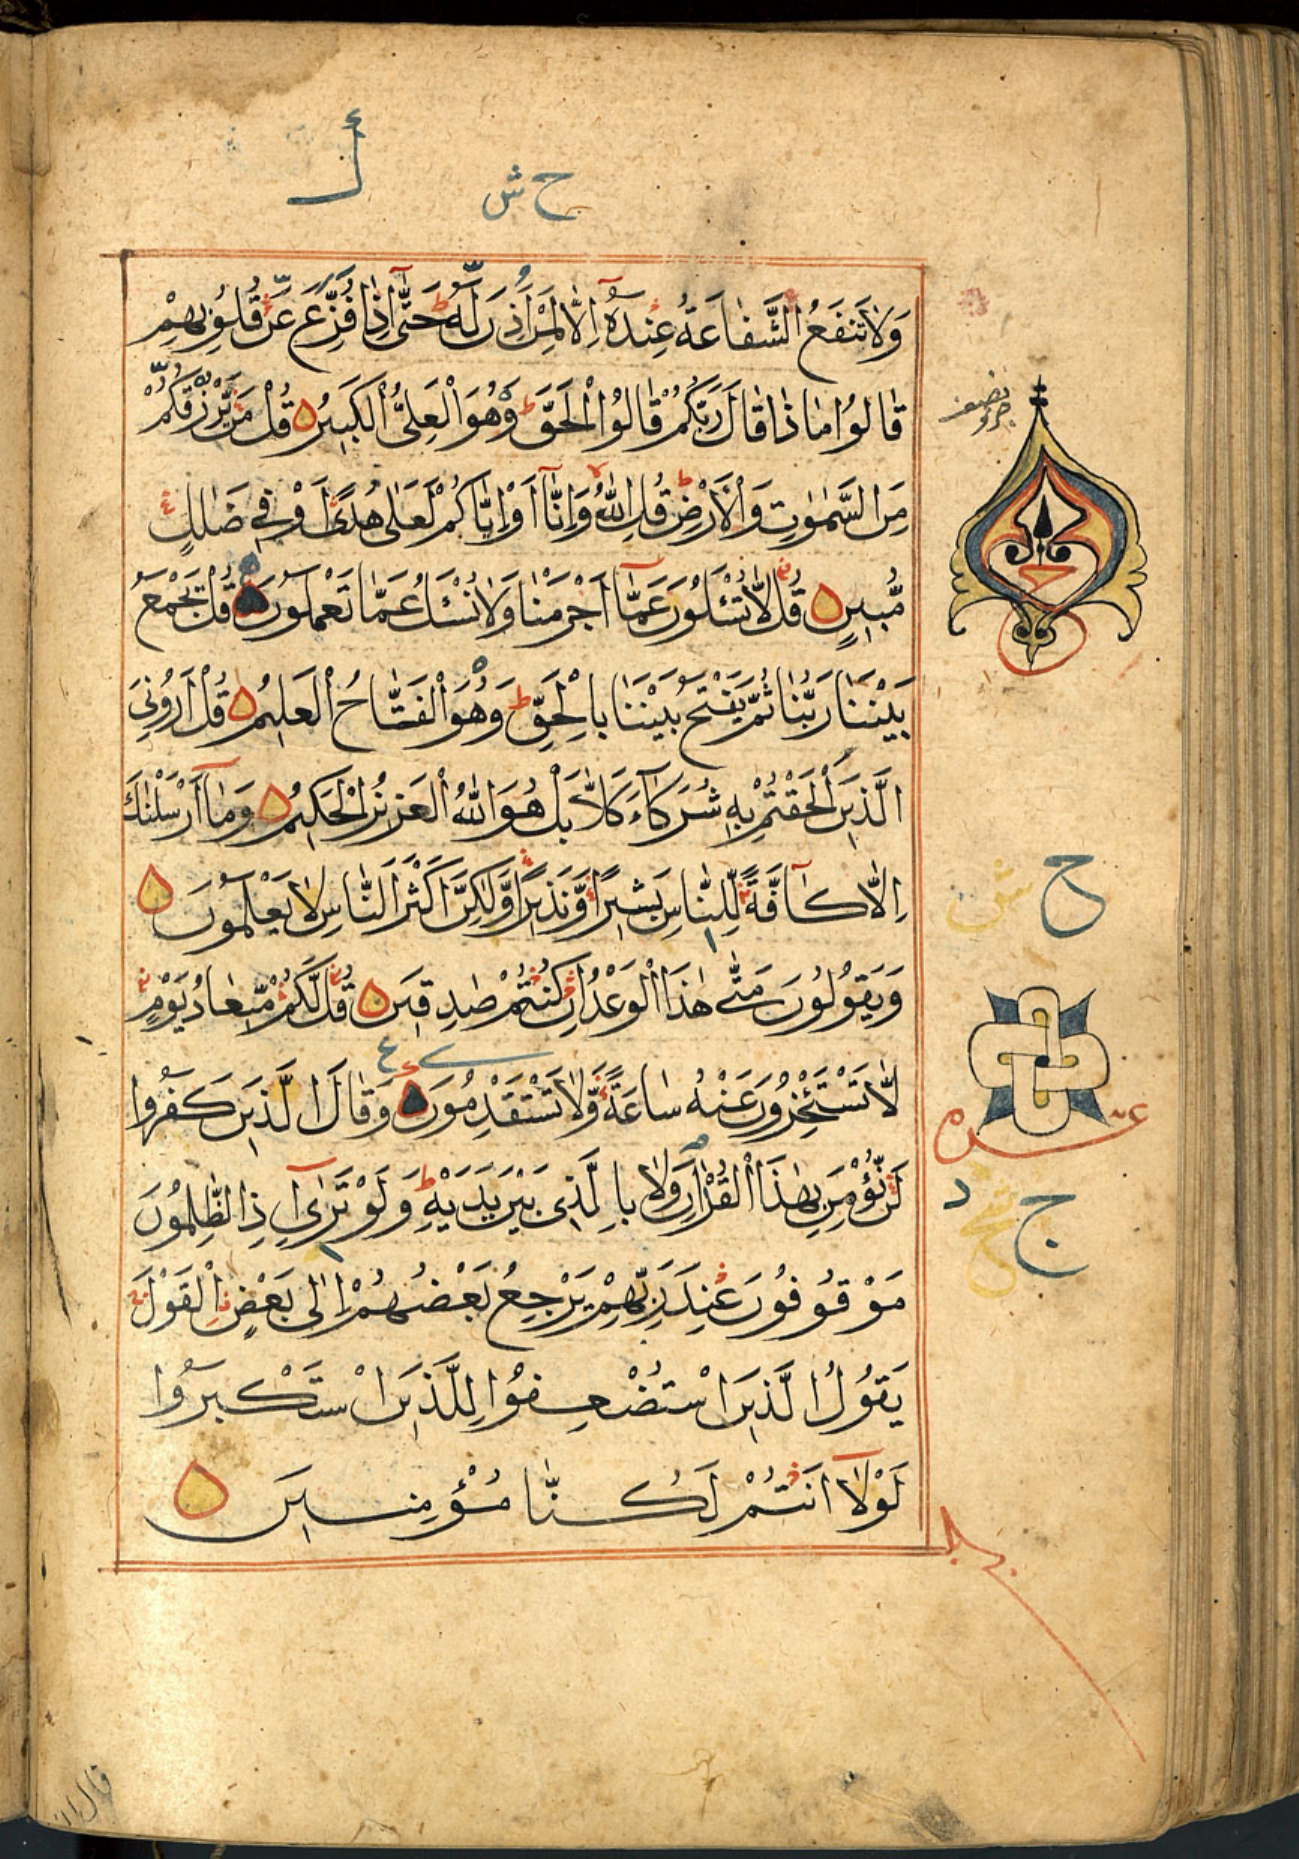 وَلَا تَنْفَعُ الشَّفَاعَةُ عِنْدَهُ إِلَّا لِمَنْ أَذِنَ لَهُ حَتَّى إِذَا فُزِّعَ عَنْ قُلُوبِهِمْ
قَالُوا مَاذَا قَالَ رَبُّكُمْ قَالُوا الْحَقَّ وَهُوَ الْعَلِيُّ الْكَبِيرُ قُلْ مَنْ يَرْزُقُكُمْ
مِنَ السَّمٰوٰتِ وَالْأَرْضِ قُلِ اللّٰهُ وَإِنَّا أَوْ إِيَّاكُمْ لَعَلٰى هُدًى أَوْ فِي ضَلٰلٍ
مُّبِينٍ قُلْ لَّا تُسْئَلُونَ عَمَّا أَجْرَمْنَا وَلَا نُسْئَلُ عَمَّا تَعْمَلُونَ قُلْ يَجْمَعُ
بَيْنَنَا رَبُّنَا ثُمَّ يَفْتَحُ بَيْنَنَا بِالْحَقِّ وَهُوَ الْفَتَّاحُ الْعَلِيمُ قُلْ أَرُونِيَ
الَّذِينَ أَلْحَقْتُمْ بِهِ شُرَكَاءَ كَلَّا بَلْ هُوَ اللّٰهُ الْعَزِيزُ الْحَكِيمُ وَمَا أَرْسَلْنٰكَ
إِلَّا كَافَّةً لِّلنَّاسِ بَشِيرًا وَّنَذِيرًا وَّلٰكِنَّ أَكْثَرَ النَّاسِ لَا يَعْلَمُونَ
وَيَقُولُونَ مَتٰى هٰذَا الْوَعْدُ إِنْ كُنْتُمْ صٰدِقِينَ قُلْ لَّكُمْ مِّيعَادُ يَوْمٍ
لَّا تَسْتَئْخِرُونَ عَنْهُ سَاعَةً وَّلَا تَسْتَقْدِمُونَ وَقَالَ الَّذِينَ كَفَرُوا
لَنْ نُّؤْمِنَ بِهٰذَا الْقُرْاٰنِ وَلَا بِالَّذِي بَيْنَ يَدَيْهِ وَلَوْ تَرٰى إِذِ الظّٰلِمُونَ
مَوْقُوفُونَ عِنْدَ رَبِّهِمْ يَرْجِعُ بَعْضُهُمْ إِلٰى بَعْضٍ الْقَوْلَ
يَقُولُ الَّذِينَ اسْتُضْعِفُوا لِلَّذِينَ اسْتَكْبَرُوا
لَوْلَا أَنْتُمْ لَكُنَّا مُؤْمِنِينَ